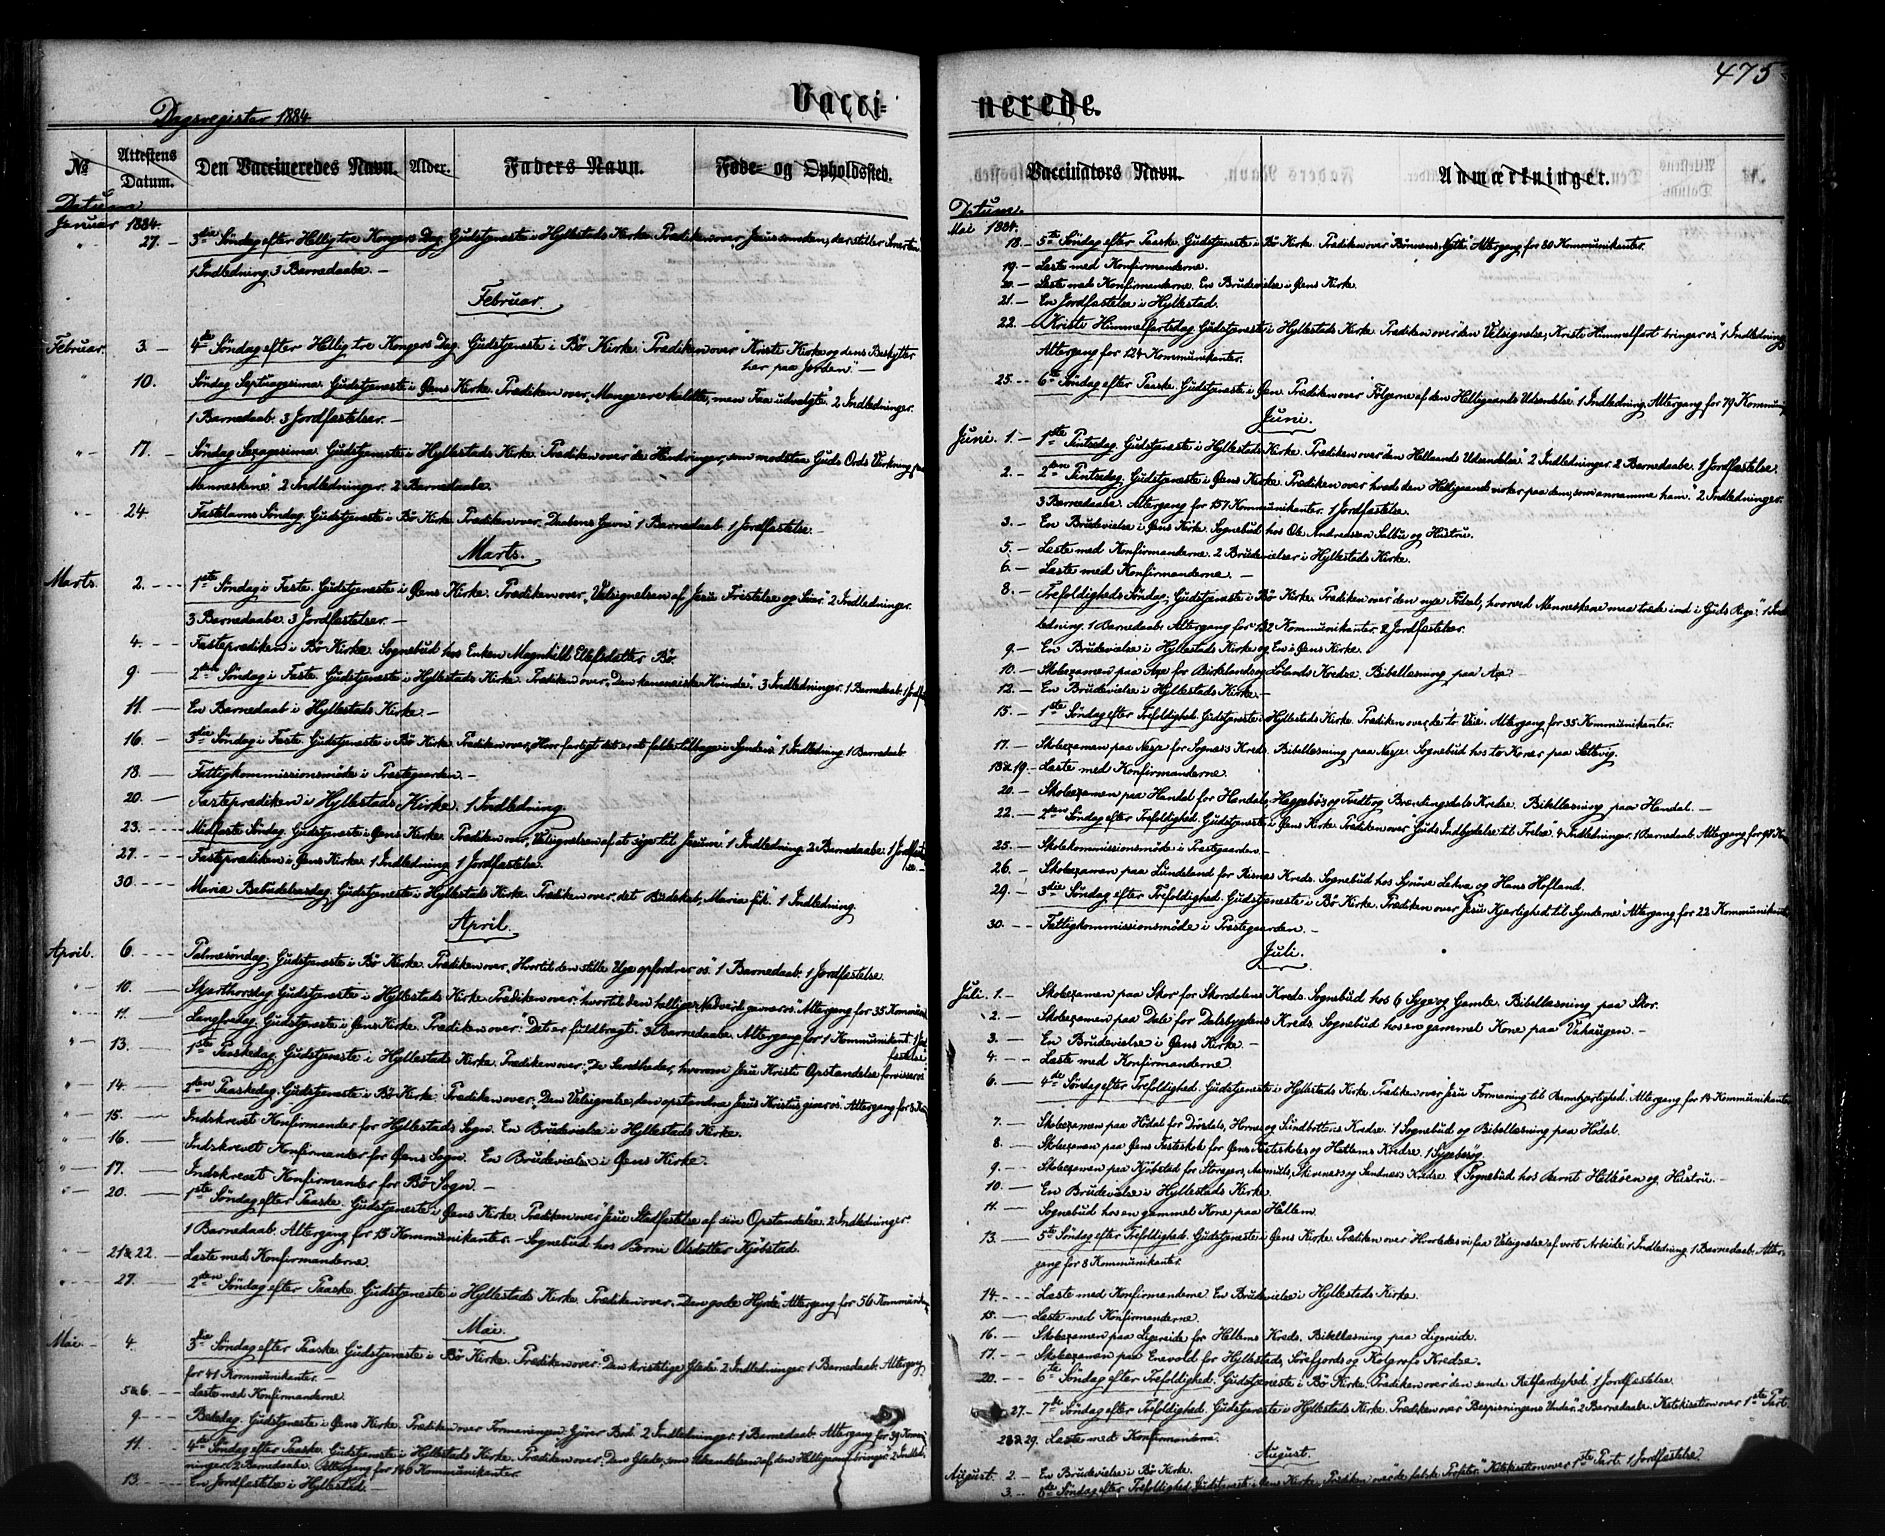 475
Dagsregister 1884
Vacci=
nerede.
No
Attestens Datum.
Den Vaccineredes Navn.
Alder.
Faders Navn.
Føde- og Opholdsted.
Datum
Januar 1884.
" 27. — 3die Søndag efter Hellig tre Kongers Dag. Gudstjeneste i Hyllestads Kirke. Prædiken over Jesus som den, der stiller
1 Indledning. 3 Barnedaabe. —
Februar.
Februar. 3. — 4de Søndag efter Hellig tre Kongers Dag. Gudstjeneste i Bø Kirke. Prædiken over "Kristi Kirke og dens Beskytter
her paa Jorden". —
" 10. Søndag Septuagesima. Gudstjeneste i Øens Kirke. Prædiken over "Mange ere kaldte, men Faa udvalgte". 2 Indledninger.
1 Barnedaab. 3 Jordfæstelser. —
" 17. Søndag Sexagesima. Gudstjeneste i Hyllestads Kirke. Prædiken over "de Hindringer, som modstaa Guds Ords Virkning paa
Menneskene". 2 Indledninger. 2 Barnedaabe.
" 24. Fastelavns Søndag. Gudstjeneste i Bø Kirke. Prædiken over "Daabens Gavn". 1 Barnedaab. 1 Jordfæstelse. —
Marts.
Marts. 2. 1ste Søndag i Faste. Gudstjeneste i Øens Kirke. Prædiken over "Velsignelsen af Jesu Fristelse og Seier". 2 Indledninger.
3 Barnedaabe. 3 Jordfæstelser. —
4. — Fasteprædiken i Bø Kirke. Sognebud hos Enken Magnhild Ellefsdatter Bø.
9. — 2den Søndag i Faste. Gudstjeneste i Hyllestads Kirke. Prædiken over "Den kananæiske Kvinde". 3 Indledninger. 1 Barnedaab. 1 Jordf
11. — En Barnedaab i Hyllestads Kirke. —
16. — 3die Søndag i Faste. Gudstjeneste i Bø Kirke. Prædiken over "Hvor farligt det er at falde tilbage i Synden". 1 Indledning. 1 Barnedaab.
18. — Fattigkommissionsmøde i Præstegaarden. —
20. — Fasteprædiken i Hyllestads Kirke. 1 Indledning.
23. Midfaste Søndag. Gudstjeneste i Øens Kirke. Prædiken over "Velsignelsen af at sige til Jesum". 1 Indledning. 2 Barnedaabe. 1 Jordfæstel
se. —
27. Fasteprædiken i Øens Kirke. 1 Indledning. 1 Jordfæstelse.
30. Mariæ Bebudelsesdag. Gudstjeneste i Hyllestads Kirke. Prædiken over "det Budskab, Maria fik". 1 Indledning.
April.
April. 6. Palmesøndag. Gudstjeneste i Bø Kirke. Prædiken over "Hvortil den stille Uge opfordrer os". 1 Barnedaab. 1 Jordfæstelse.
" 10. Skjærthorsdag. Gudstjeneste i Hyllestads Kirke. Prædiken over "hvortil den hellige Nadverd er givet os". Altergang for 35 Kommuni
" 11. Langfredag. Gudstjeneste i Øens Kirke. Prædiken over "Det er fuldbragt". 3 Barnedaabe. Altergang for 1 Kommunikant. 1 Jord
fæstelse.
" 13. 1ste Paaskedag. Gudstjeneste i Hyllestads Kirke. Prædiken over "De Sandheder, hvorom Jesu Kristi Opstandelse forvisser os
" 14. 2den Paaskedag. Gudstjeneste i Bø Kirke. Prædiken over "Den Velsignelse, den opstandne Jesus Kristus giver os". Altergang for 8 Ko
" 15. Indskrevet Konfirmander for Hyllestads Sogn. En Brudevielse i Hyllestads Kirke.
" 16. Indskrevet Konfirmander for Øens Sogn. En Brudevielse i Øens Kirke.
" 17. Indskrevet Konfirmander for Bø Sogn. —
" 20. 1ste Søndag efter Paaske. Gudstjeneste i Øens Kirke. Prædiken over "Jesu Stadfæstelse af sin Opstandelse". 2 Indledninger.
1 Barnedaab. Altergang for 13 Kommunikanter. — Sognebud hos Berni Olsdatter Kjøbstad.
" 21 & 22. Læste med Konfirmanderne.
" 27. 2den Søndag efter Paaske. Gudstjeneste i Hyllestads Kirke. Prædiken over "Den gode Hyrde". Altergang for 56 Kommunika
Mai.
Mai. 4. 3die Søndag efter Paaske. Gudstjeneste i Bø Kirke. Prædiken over "Den kristelige Glæde". 2 Indledninger. 1 Barnedaab. Altergang
for 41 Kommunikanter. —
5 & 6. Læste med Konfirmanderne.
9. Bededag. Gudstjeneste i Øens Kirke. Prædiken over Formaningen: Gjører Bod. 2 Indledninger. 1 Barnedaab. Altergang for 39 Kommu
11. 4de Søndag efter Paaske. Gudstjeneste i Hyllestads Kirke. Prædiken over "Den Glæde, som Udsendelsen af den Helligaand bringer". 2 Indled
ninger. 2 Barnedaabe. Altergang for 146 Kommunikanter.
13. En Jordfæstelse i Hyllestad. —
Vaccinators Navn.
Anmærkninger.
Datum.
Mai 1884.
18. — 5te Søndag efter Paaske. Gudstjeneste i Bø Kirke. Prædiken over "Bønnens Nytte". Altergang for 80 Kommunikanter.
19. — Læste med Konfirmanderne.
20. — Læste med Konfirmanderne. En Brudevielse i Øens Kirke.
21. — En Jordfæstelse i Hyllestad.
22. — Kristi Himmelfartsdag. Gudstjeneste i Hyllestads Kirke. Prædiken over "den Velsignelse, Kristi Himmelfart bringer os". 1 Indledning.
Altergang for 124 Kommunikanter.
25. 6te Søndag efter Paaske. Gudstjeneste i Øen. Prædiken over "Følgerne af den Helligaands Udsendelse". 1 Indledning. Altergang for 79 Kommuni
Juni.
Juni. 1. — 1ste Pintsedag. Gudstjeneste i Hyllestads Kirke. Prædiken over "den Helligaands Udsendelse". 2 Indledninger. 2 Barnedaabe. 1 Jordfæstelse.
2. — 2den Pintsedag. Gudstjeneste i Øens Kirke. Prædiken over "hvad den Helligaand virker paa dem, som annamme ham". 2 Indledninger.
3 Barnedaabe. Altergang for 157 Kommunikanter. 1 Jordfæstelse.
3. — En Brudevielse i Øens Kirke. Sognebud hos Ole Andreassen Salbu og Hustru.
5. — Læste med Konfirmanderne. 2 Brudevielser i Hyllestads Kirke.
6. — Læste med Konfirmanderne. —
8. — Trefoldigheds Søndag. Gudstjeneste i Bø Kirke. Prædiken over "den nye Fødsel, hvorved Menneskene maa træde ind i Guds Rige". 1 Ind
ledning. 1 Barnedaab. Altergang for 132 Kommunikanter. 2 Jordfæstelser.
9. — En Brudevielse i Hyllestads Kirke og En i Øens Kirke.
10. — Skoleexamen paa Aae for Birkelands og Løtlands Kredse. Bibellæsning paa Aae.
12. — En Brudevielse i Hyllestads Kirke. —
15. — 1ste Søndag efter Trefoldighed. Gudstjeneste i Hyllestads Kirke. Prædiken over "de to Veie". Altergang for 35 Kommunikanter.
17. — Skoleexamen paa Nesje for Sognesø Kreds. Bibellæsning paa Nesje. Sognebud hos to Koner paa Sættevig.
18 & 19. — Læste med Konfirmanderne.
20. — Skoleexamen paa Handal for Handals, Heggebøs og Tvedt og Brændingsdals Kredse. Bibellæsning paa Handal. —
22. — 2den Søndag efter Trefoldighed. Gudstjeneste i Øens Kirke. Prædiken over "Guds Indbydelse til Frelse". 4 Indledninger. 1 Barnedaab. Altergang for 98 Kom
25. — Skolekommissionsmøde i Præstegaarden. —
26. — Skoleexamen paa Lundeland for Risnes Kreds. Sognebud hos Synnve Lekva og Hans Hofland.
29. — 3die Søndag efter Trefoldighed. Gudstjeneste i Bø Kirke. Prædiken over "Jesu Kjærlighed til Synderne". Altergang for 22 Kommunikanter
30. — Fattigkommissionsmøde i Præstegaarden. —
Juli.
Juli. 1. — Skoleexamen paa Skor for Skordalens Kreds. Sognebud hos 6 Syge og Gamle. Bibellæsning paa Skor.
2. — Skoleexamen paa Dale for Dalsbygdens Kreds. Sognebud hos en gammel Kone paa
3. — En Brudevielse i Øens Kirke. —
4. — Læste med Konfirmanderne.
6. — 4de Søndag efter Trefoldighed. Gudstjeneste i Hyllestads Kirke. Prædiken over "Jesu Formaning til Barmhjertighed". Altergang for 14 Kommunikanter
7. — Skoleexamen paa Hødal for Drøsdals, Hornes og Sundbottens Kredse. 1 Sognebud og Bibellæsning paa Hødal.
8. — Skoleexamen paa Øens Fastskole for Øens Fastskoles og Hatlems Kredse. 1 Sygebesøg.
9. — Skoleexamen paa Kjøbstad for Storagers, Aasmuls, Skivenes og Sandnes Kredse. Sognebud hos Bernt Heltbøen og Hustru. —
10. — En Brudevielse i Hyllestads Kirke.
11. — Sognebud hos en gammel Kone paa Hatlem.
13. — 5te Søndag efter Trefoldighed. Gudstjeneste i Øens Kirke. Prædiken over "Hvorledes vi faa Velsignelse af vort Arbeide". 1 Indledning. 1 Barnedaab. Alter-
gang for 8 Kommunikanter.
14. — Læste med Konfirmanderne. En Brudevielse i Hyllestads Kirke.
15. — Læste med Konfirmanderne.
16. — Skoleexamen paa Ligereide for Hellems Kreds. Bibellæsning paa Ligereide.
17. — Skoleexamen paa Enevold for Hyllestads, Sørefjords og Kolgrofs Kredse.
20. — 6te Søndag efter Trefoldighed. Gudstjeneste i Bø Kirke. Prædiken over "den sande Retfærdighed". 1 Jordfæstelse.
27. — 7de Søndag efter Trefoldighed. Gudstjeneste i Hyllestads Kirke. Prædiken over "Bespisningens Under". 2 Barnedaabe. Katekisation over 1ste Part.
28 & 29. Læste med Konfirmanderne.
August.
August. 2. — En Brudevielse i Bø Kirke.
3. — 8de Søndag efter Trefoldighed. Gudstjeneste i Øens Kirke. Prædiken over "de falske Profeter". Katekisation over 1ste Part. 1 Jordfæstelse.